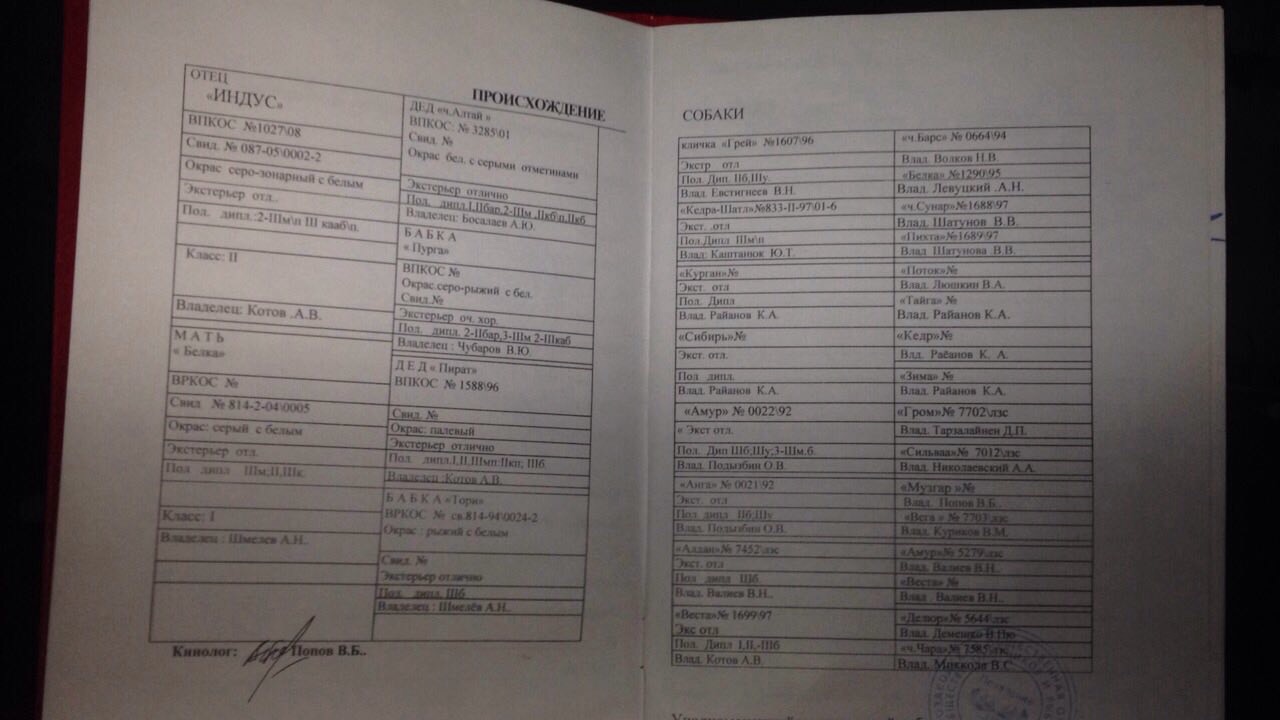 ПРОИСХОЖДЕНИЕ
ОТЕЦ
«ИНДУС»
ВПКОС №1027\08
Свид. № 087-05\0002-2
Окрас серо-зонарный с белым
Экстерьер отл..
Пол. дипл.:2-Шм\п III кааб\п.
Класс: II
Владелец: Котов .А.В.
М А Т Ь
« Белка»
ВРКОС №
Свид № 814-2-04\0005
Окрас: серый с белым
Экстерьер отл.
Пол дипл Шм;II,Шк.
Класс: I
Владелец : Шмелев А.Н..
ДЕД «ч.Алтай »
ВПКОС: № 3285\01
Свид. №
Окрас бел. с серыми отметинами
Экстерьер отлично
Пол. дипл.I,IIбар,2-Шм ,IIкб\п,IIкб
Владелец: Босалаев А.Ю.
Б А Б К А
« Пурга»
ВПКОС №
Окрас.серо-рыжий с бел.
Свид.№
Экстерьер оч. хор.
Пол. дипл. 2-IIбар,3-Шм 2-Шкаб
Владелец : Чубаров В.Ю.
Д Е Д « Пират»
ВПКОС № 1588\96
Свид. №
Окрас: палевый
Экстерьер отлично
Пол. дипл.I,II,Шмп:IIкп; Шб.
Владелец :Котов А.В.
Б А Б К А «Тори»
ВРКОС № св.814-94\0024-2
Окрас : рыжий с белым
Свид. №
Экстерьер отлично
Пол. дипл. Шб
Владелец : Шмелёв А.Н..
Кинолог: Попов В.Б..
СОБАКИ
кличка «Грей» №1607\96
Экстр отл
Пол. Дип. IIб,Шу.
Влад. Евстигнеев В.Н.
«Кедра-Шатл»№833-II-97\01-6
Экст. .отл
Пол.Дипл Шм\п
Влад: Каштанюк Ю.Т.
«Курган»№
Экст. отл
Пол. Дипл
Влад. Райанов К.А.
«Сибирь»№
Экст. отл.
Пол дипл.
Влад. Райанов К.А.
«Амур» № 0022\92
« Экст отл.
Пол. Дип Шб;Шу;3-Шм.б.
Влад. Подызбин О.В.
«Анга» № 0021\92
Экст. отл
Пол дипл IIб;Шу
Влад. Подызбин О.В.
«Алдан»№ 7452\лзс
Экст. отл
Пол дипл Шб.
Влад. Валиев В.Н..
«Веста»№ 1699\97
Экс отл
Пол. Дипл I,II,-Шб
Влад. Котов А.В.
«ч.Барс» № 0664\94
Влад. Волков Н.В.
«Белка» №1290\95
Влад. Левуцкий .А.Н.
«ч.Сунар»№1688\97
Влад. Шатунов В.В.
«Пихта»№1689\97
Влад Шатунова .В.В.
«Поток»№
Влад. Люшкин В.А.
«Тайга» №
Влад. Райанов К.А.
«Кедр»№
Влд. Раёанов К. А.
«Зима» №
Влад. Райанов К.А.
«Гром»№ 7702\лзс
Влад. Тарзалайнен Д.П.
«Сильваа»№ 7012\лзс
Влад. Николаевский А.А.
«Музгар »№
Влад. Попов В.Б..
«Вега » № 7703\лзс
Влад. Куриков В.М.
«Амур»№ 5279\лзс
Влад. Валиев В.Н..
«Веста» №
Влад . Валиев В.Н..
«Делюр»№ 5644\лзс
Влад. Демешко В.Ню
«ч.Чара»№ 7585\лзс
Влад. Миккола В.С